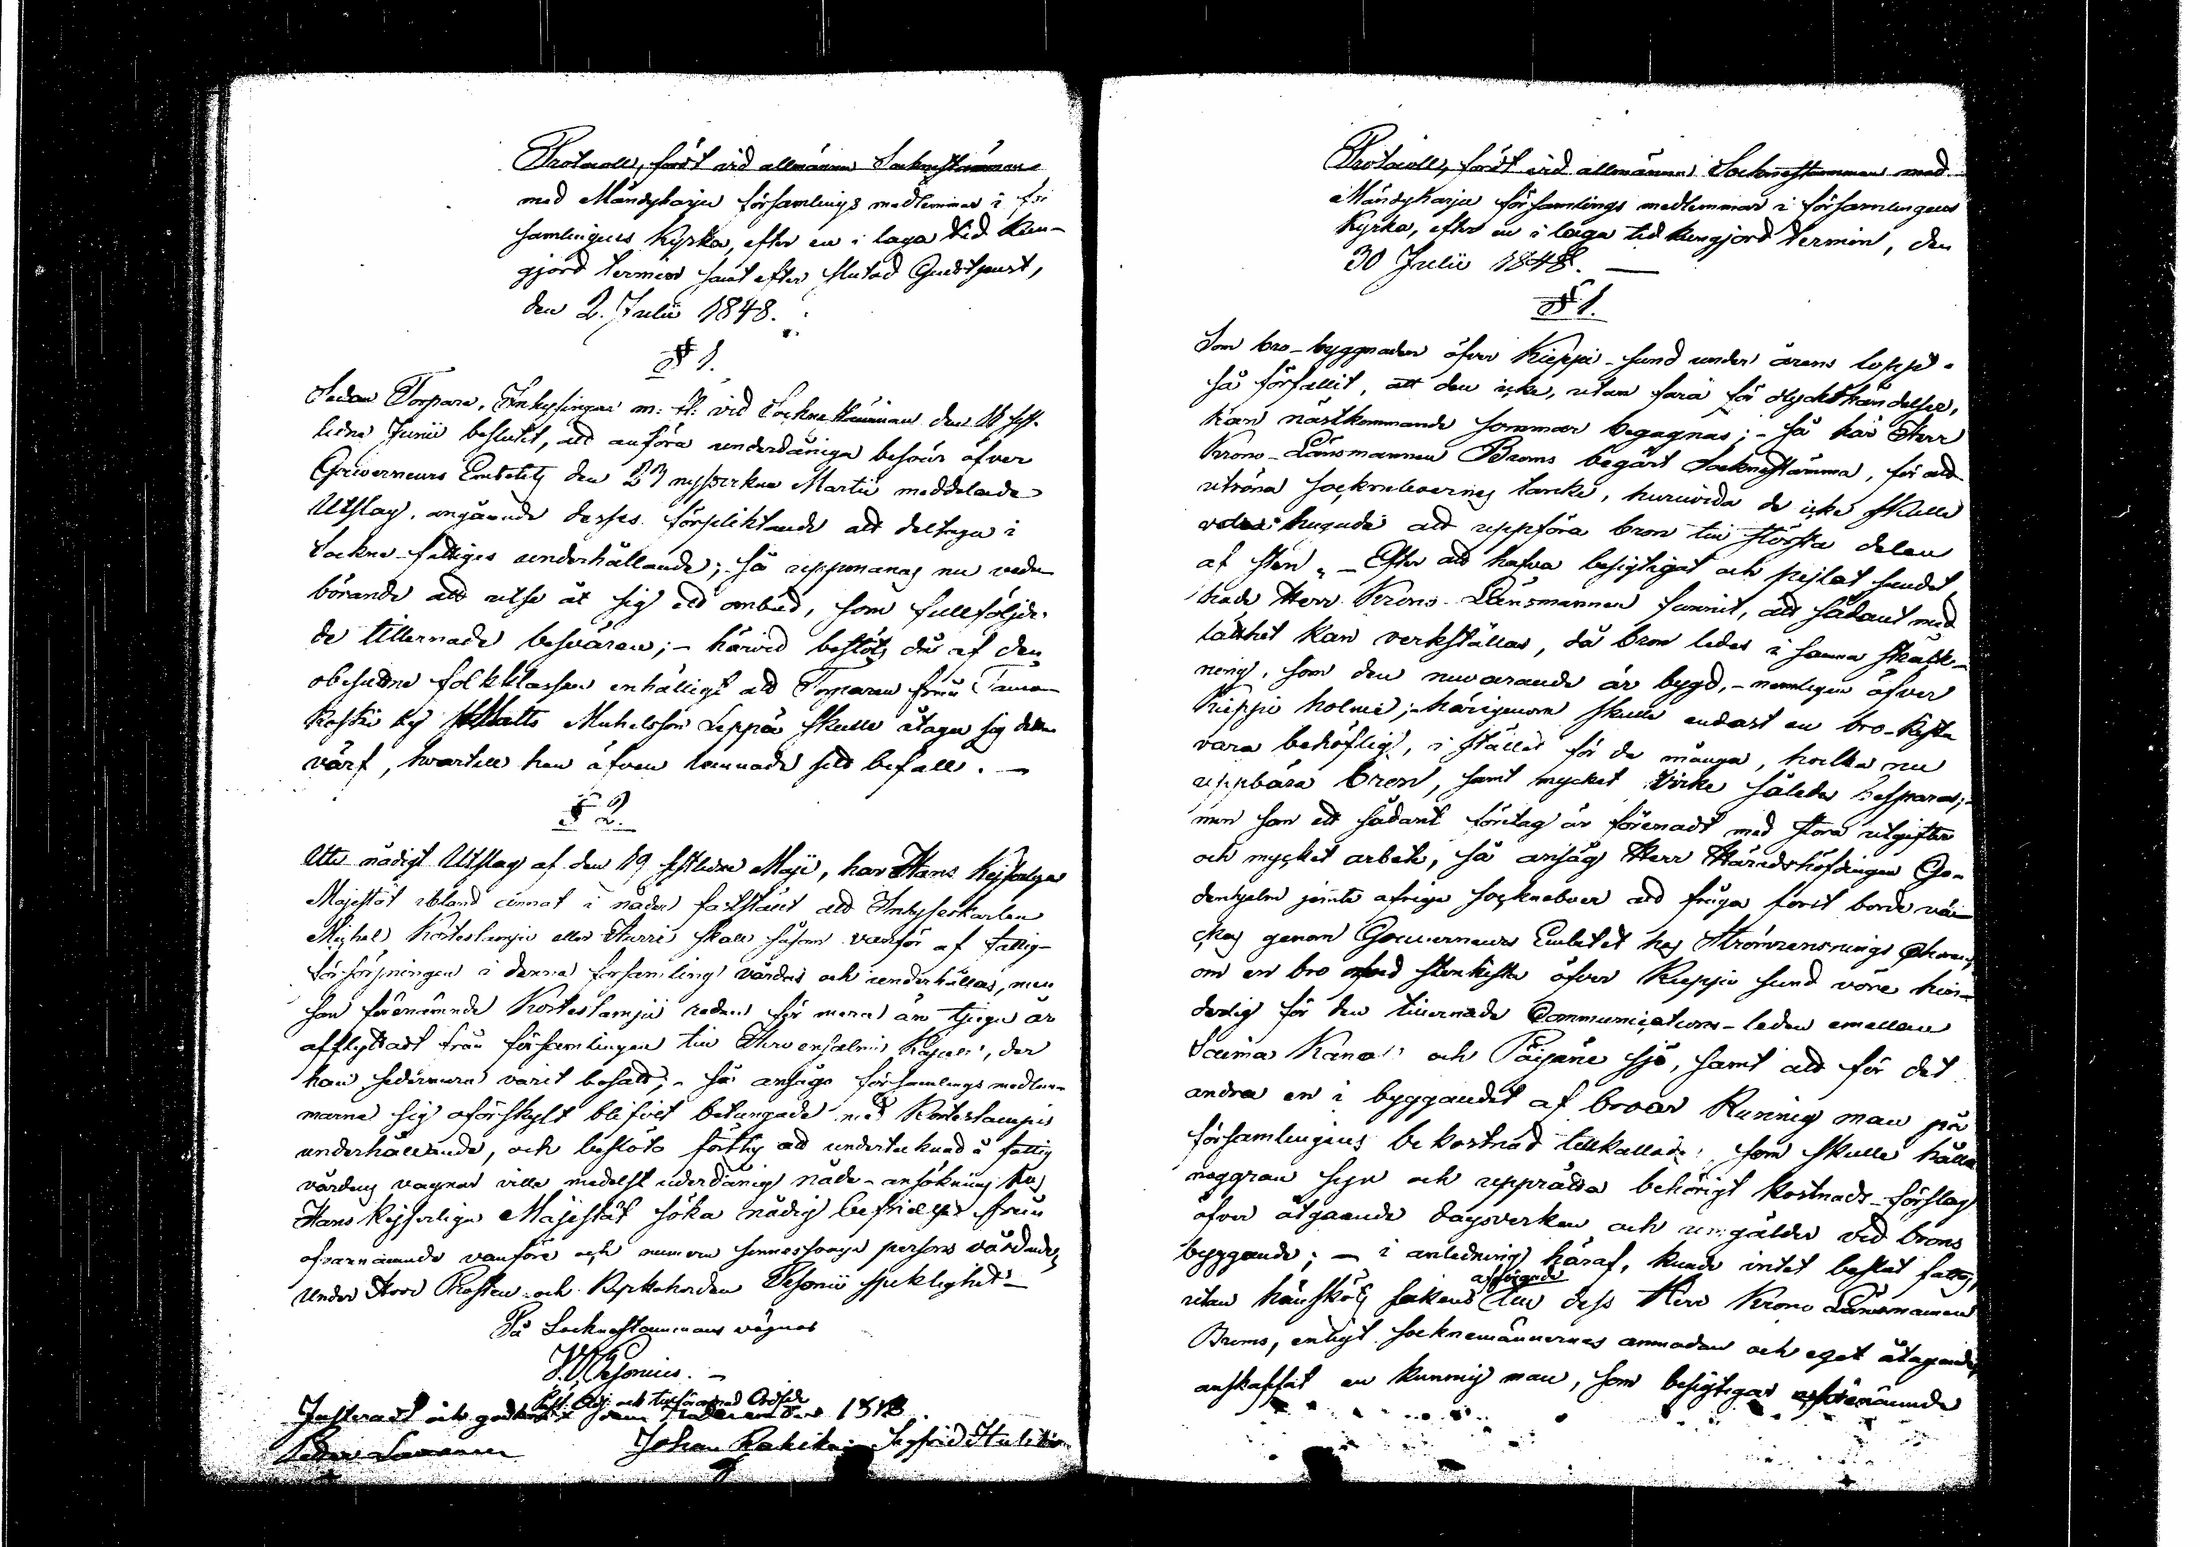 Protocoll, fördt vid allmänna Socknestämman
med Mändyharju församlings medlemmar i för-
samlingens Kyrka, efter en i laga tid kun-
gjord termin samt efter slutad Gudstjenst,
den 2. Julii 1848.
§ 1.
Sedan Torpare, Inhysingar m: fl: vid Sockne stämman den 11 sist-
lidne Junii beslutit, att anföra underdåniga besvär öfver
Gouverneurs Embetets den 23 nyssvekne Martii meddelade
Utslag, angående desses förpliktande att deltaga i
Sockne-fattiges underhållande; så uppmanas nu veder-
börande att utse åt sig ett ombud, som fullföljde
de tillernade besvären; - härvid beslöts då af den
obesuttne folkklassen enhälligt att Torparen från
by Matts Michelsson Leppä skulle åtaga sig detta
värf, hvartill han äfven lemnade sitt bifall. -
§ 2.
Uti nådigt Utslag af den 19 sistledne Maji, har Hans Kejserliga
Majestät ibland annat i nåder fastställt att Inhyseskarlen
Michel Kortelampi eller Hurri skall såsom vanför af fattig-
försörjningen i denna församling vårdas och underhållas, men
som förenämnde Kortelampi redan för mera än tjugu år
afflyttadt från församlingen till Kapell, der
han sedermera varit bosatt; - så ansågo församlings medlem-
marne sig oförskylt blifvit betungade med Kortelampis
underhållande, och beslöto förthy att undertecknad å fattig
vårdens vagnar ville medelst underdånig nåde-ansökning hos
Hans Kejserliga Majestät söka nådig befrielse från
ofvannämnde vanföre och numera sinnessvaga persons vårdande,
under Herr Prosten och Kyrkoherden Pesonii sjuklighet -
På Socknestämmans vägnar
J. W. Pesonius. -
Past. Adj. och tillförordnad Ordför.
Justeradt och godkändt 1848.
Johan Sigfrid
Protocoll, fördt vid allmänna Socknestämman med
Mändyharju församlings medlemmar i församlingens
Kyrka, efter en i laga tid kungjord termin, den
30 Julii 1848. -
§ 1.
Som bro-byggnaden öfver Kieppi-sund under årens lopp
så förfallit, att den icke, utan fara för olyckshändelser,
kan nästkommande sommar begagnas; - så har Herr
Krono-Länsmannen Brums begärt Socknestämma, för att
utröna socknebornes tanke, huruvida de icke skulle
vara hugade att uppföra bron till största delen
af sten. - Efter att hafva besigtigat och pejlat sundet,
hade Herr Krono Länsmannen funnit, att sådant med
lätthet kan verkställas, då bron ledes i samma sträck-
ning, som den nuvarande är bygd, - nemligen öfver
Kieppi holme; - härigenom skulle endast en bro-kista
vara behöflig, i stället för de många, hvilka nu
uppbära bron, samt mycket virke således besparas; -
men som ett sådant företag är förenadt med stora utgifter
och mycket arbete, så ansåg Herr Häradshöfdingen Go-
denhjelm jemte öfriga socknebor att fråga först borde väc-
kas genom Gouverneurs Embetet hos Strömrensnings
om en bro med stenkista öfver Kieppi sund vore hin-
derlig för den tillernade Communications-leden emellan
Saima Kanal och Päijäne sjö, samt att för det
andra en i byggandet af broar kunnig man på
församlingens bekostnad tillkallades, som skulle hålla
noggran syn och upprätta behörigt kostnads-förslag
öfver åtgående dagsverken och umgälder vid brons
byggande; - i anledning häraf, kunde intet beslut fattas,
utan hänsköts sakens afgörande till dess Herr Krono Länsmannen
Brums, enligt sockne männernes anmodan och eget åtagande,
anskaffat en kunnig man, som besigtigar